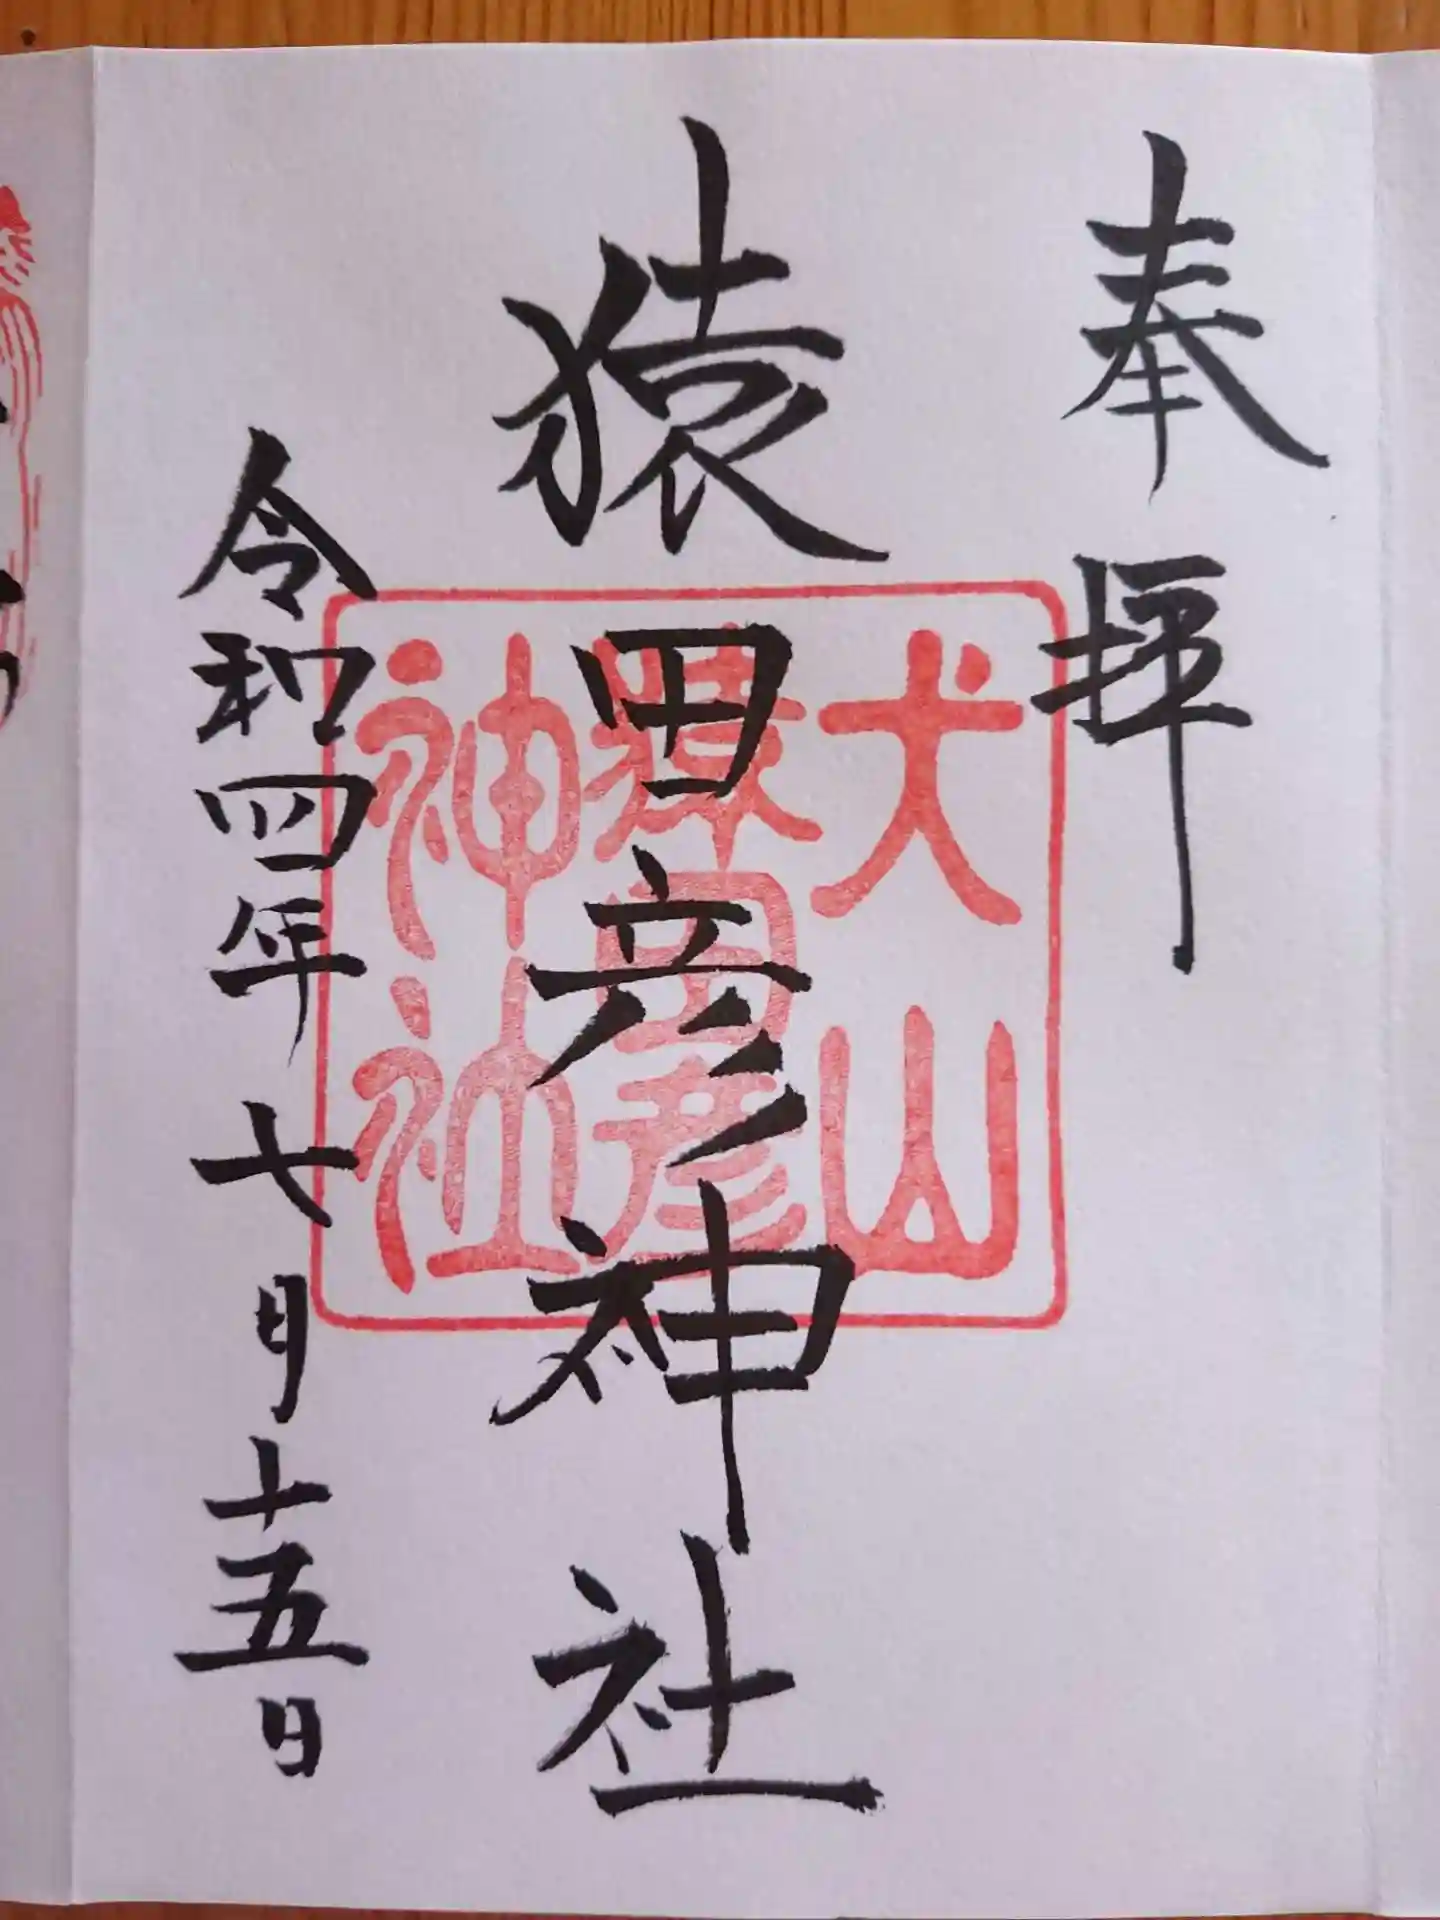 奉拝
猿田彦神社
令和四年七月十五日
犬山
猿田彦
神社